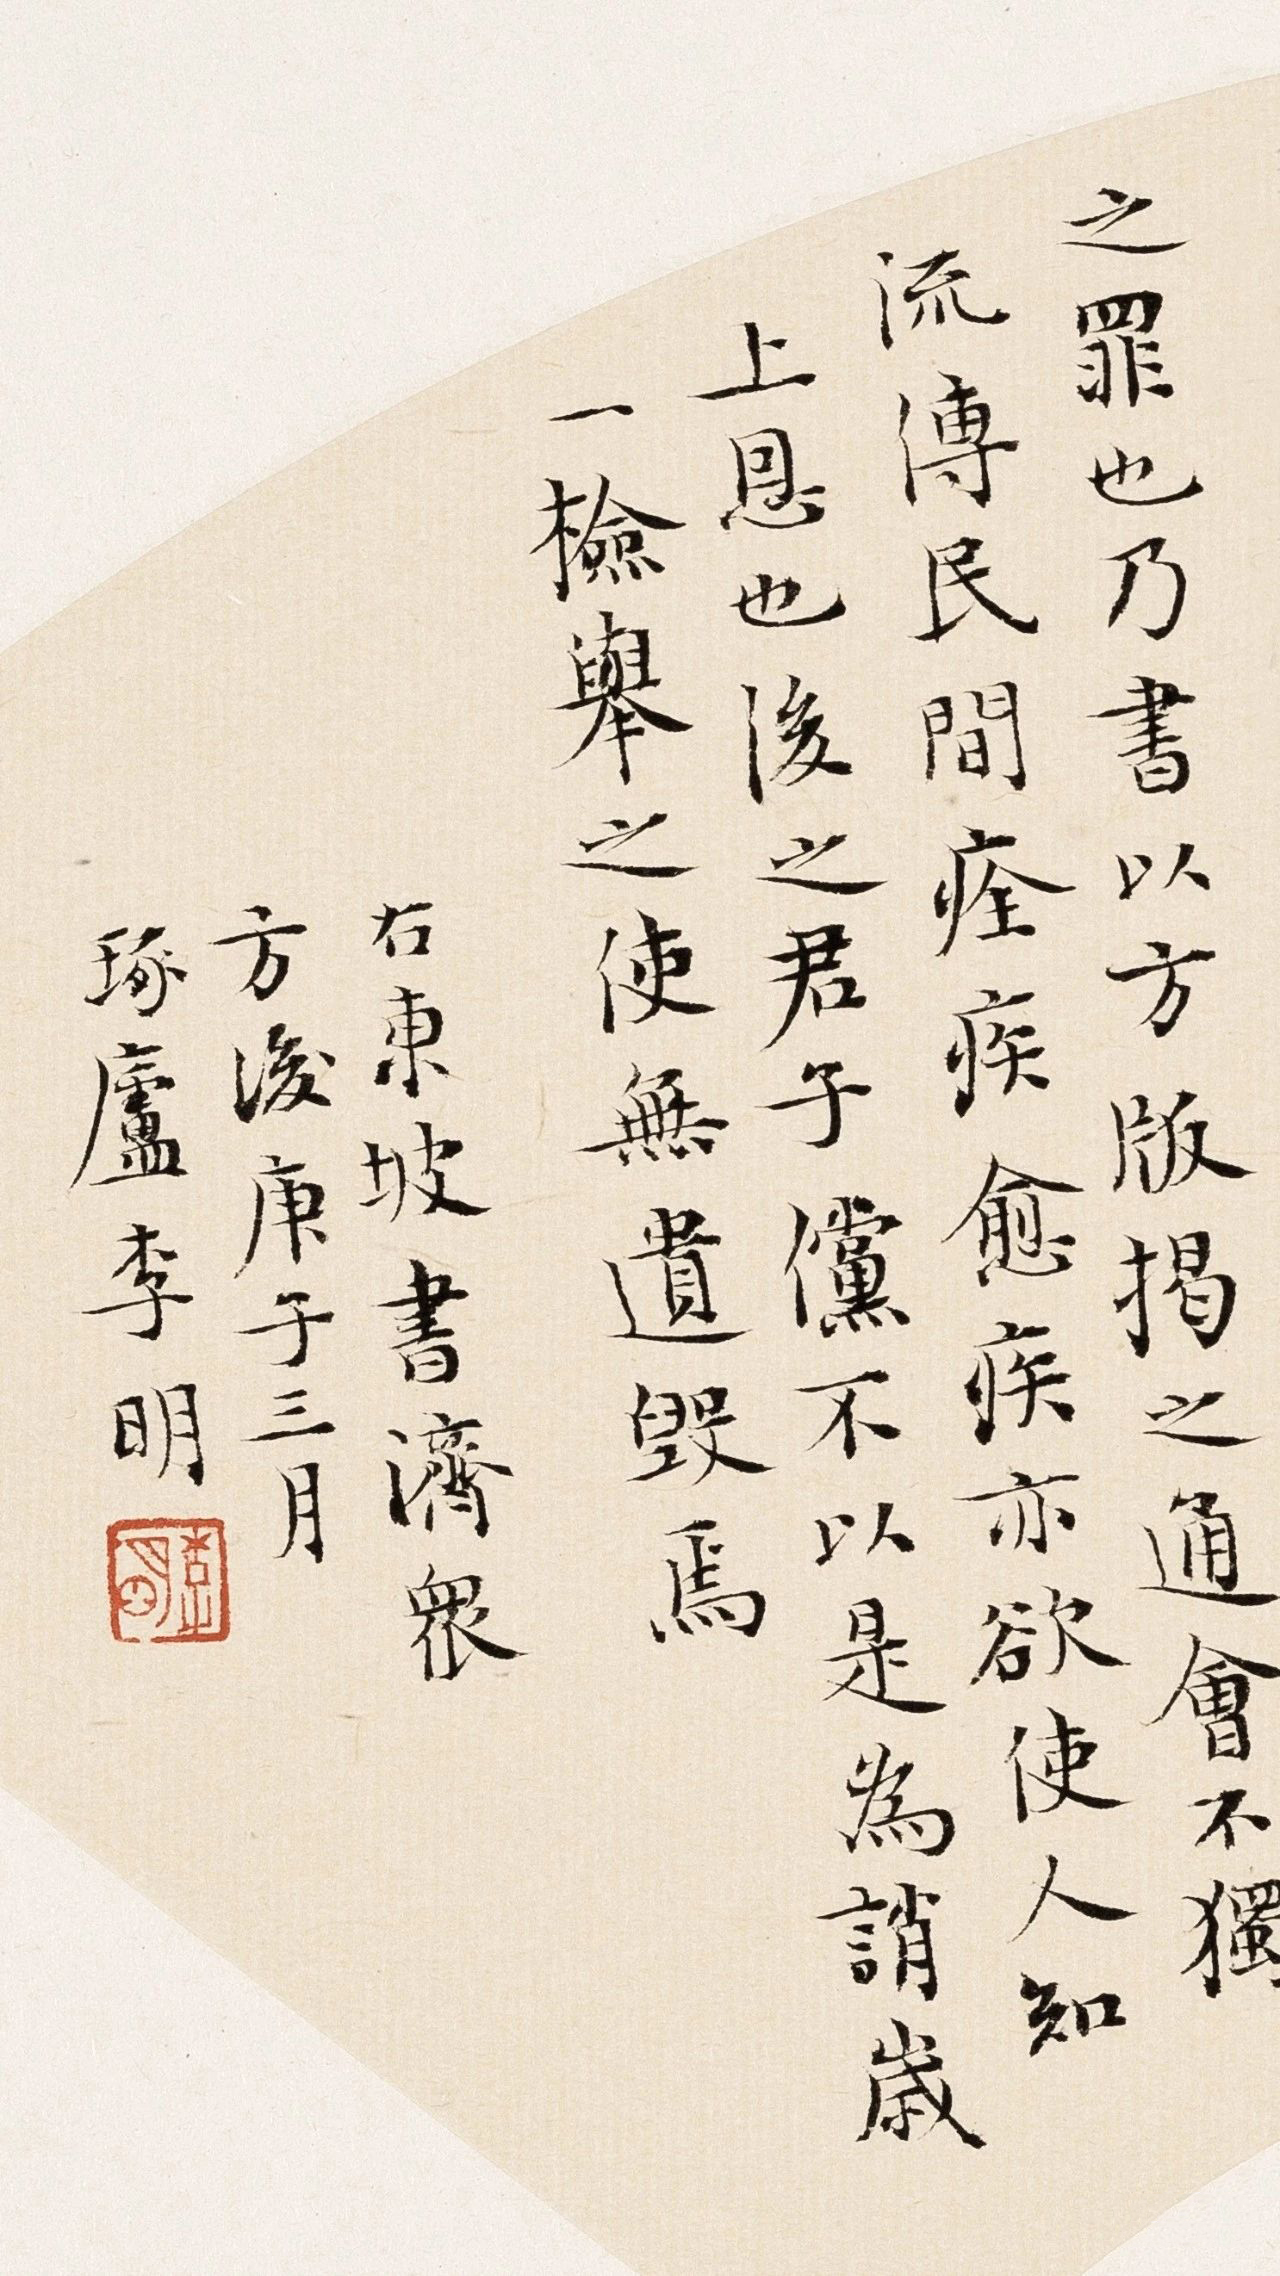 之罪也乃書以方版揭之通會不獨
流傳民間痊疾愈疾亦欲使人知
上恩也後之君子儻不以是為誚歲
一檢舉之使無遺毀焉
右東坡書濟衆
方後庚子三月
琢廬李明